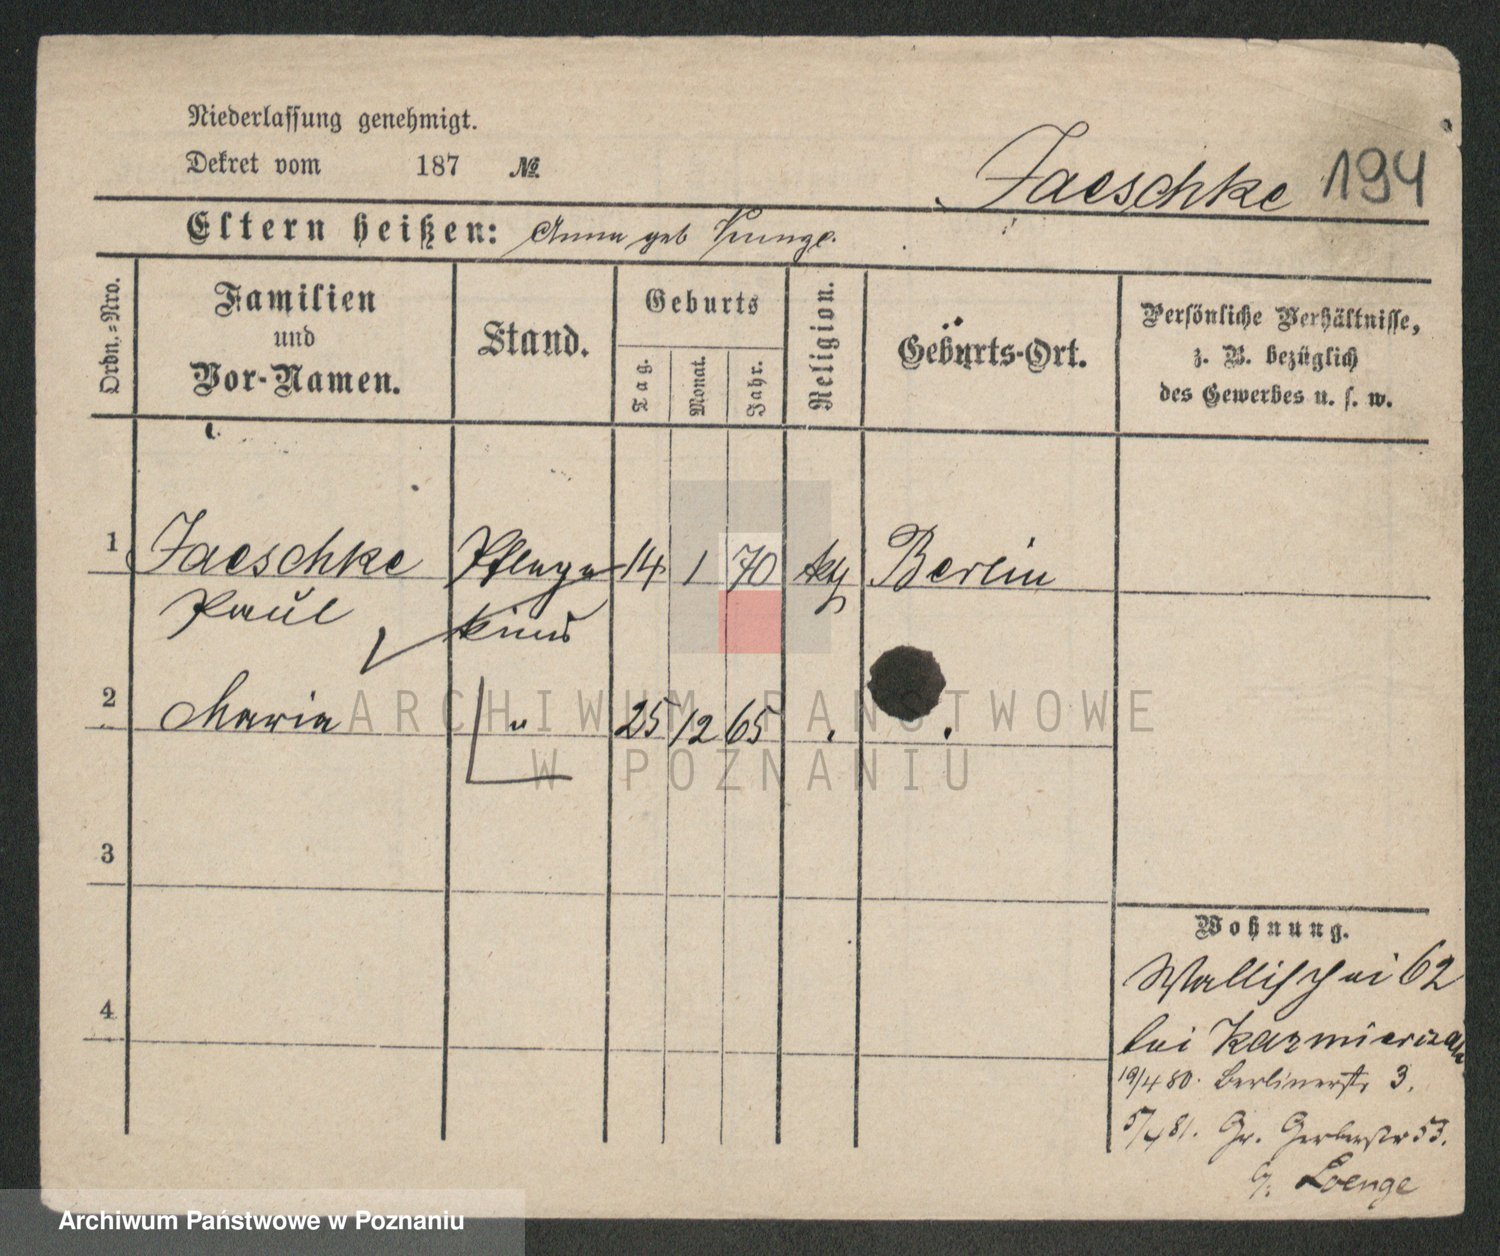 Niederlassung genehmigt.
Dekret vom 187 №
Jaeschke 194
Eltern heißen: Anna geb
Ordn.-Nro.
Familien
und
Vor-Namen.
Stand.
Geburts
Tag.
Monat.
Jahr.
Religion.
Geburts-Ort.
Persönliche Verhältnisse,
z. B. bezüglich
des Gewerbes u. s. w.
1 Jaeschke Pflege 14 1 70 Berlin
Paul kind
2 Maria " 25 12 65
3
4
Wohnung.
Wallischei 62
bei
19/4 80. Berlinerstr 3.
5/4 81. Gr. Gerberstr 53.
ARCHIWUM PAŃSTWOWE
W POZNANIU
Archiwum Państwowe w Poznaniu